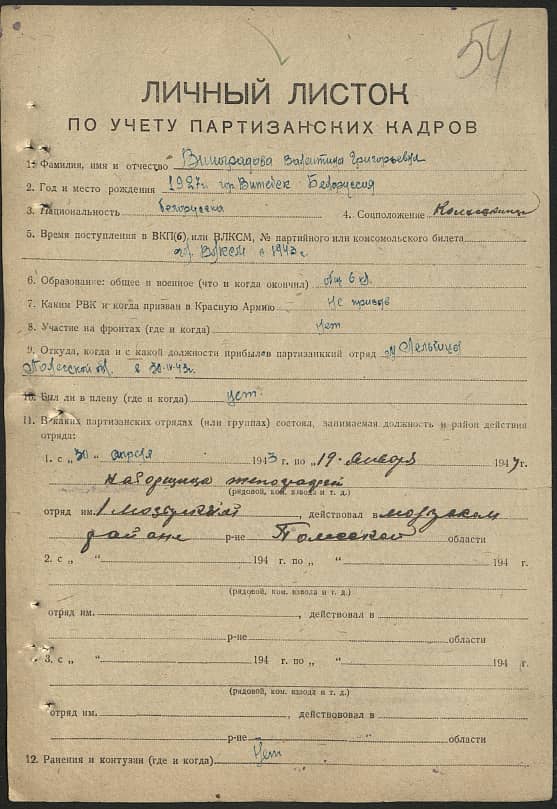 54
ЛИЧНЫЙ ЛИСТОК
ПО УЧЕТУ ПАРТИЗАНСКИХ КАДРОВ
1. Фамилия, имя и отчество Виноградова Валентина Григорьевна
2. Год и место рождения 1927г. гор. Витебск Белоруссия
3 Национальность белорусска 4. Соцположение
5. Время поступления в ВКП(б) или ВЛКСМ, № партийного или комсомольского билета
ВЛКСМ с 1943 г
6. Образование: общее и военное (что и когда окончил) общ 6 кл.
7. Каким РВК и когда призван в Красную Армию не призыв
8. Участие на фронтах (где и когда) нет
9. Откуда, когда и с какой должности прибыл в партизанкий отряд Лельчицы
Полесской об. с 30-IV-43г.
10. Был ли в плену (где и когда) нет.
11. В каких партизанских отрядах (или группах) состоял, занимаемая должность и район действия
отряда:
1. с „30 “ апреля 1943 г. по „19 “ января 1944 г.
наборщица типографий
(рядовой, ком. взвода и т. д.)
отряд им. 1 Мозырский, действовал в мозырском
районе р-не Полесской области
2. с „ “ 194 г. по „ “ 194 г.
(рядовой, ком. взвода и т. д.)
отряд им. , действовал в
р-не области
3. с „ “ 194 г. по „ “ 194 г.
(рядовой, ком. взвода и т. д.)
отряд им. , действовал в
р-не области
12. Ранения и контузии (где и когда) Нет